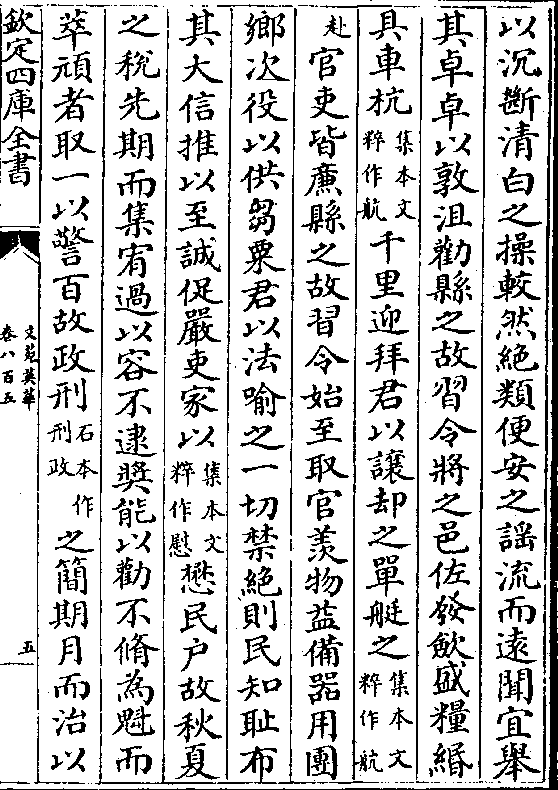 以沉斷清白之操較然絕類便安之謡流而遠聞宜舉
其卓卓以敦沮勸縣之故習令將之邑佐發歛盛糧緡
具車杭集本文粹作航千里迎拜君以讓却之單艇之集本文粹作航
赴官吏皆廉縣之故習令始至取官羨物益備器用團
鄉次役以供芻粟君以法喻之一切禁絶則民知耻布
其大信推以至誠促嚴吏家以集本文粹作慰懋民户故秋夏
之稅先期而集宥過以容不逮奨能以勸不脩為魁而
萃頑者取一以警百故政刑石本作刑政之簡期月而治以
欽定四庫全書
文苑英華
卷八百五
五